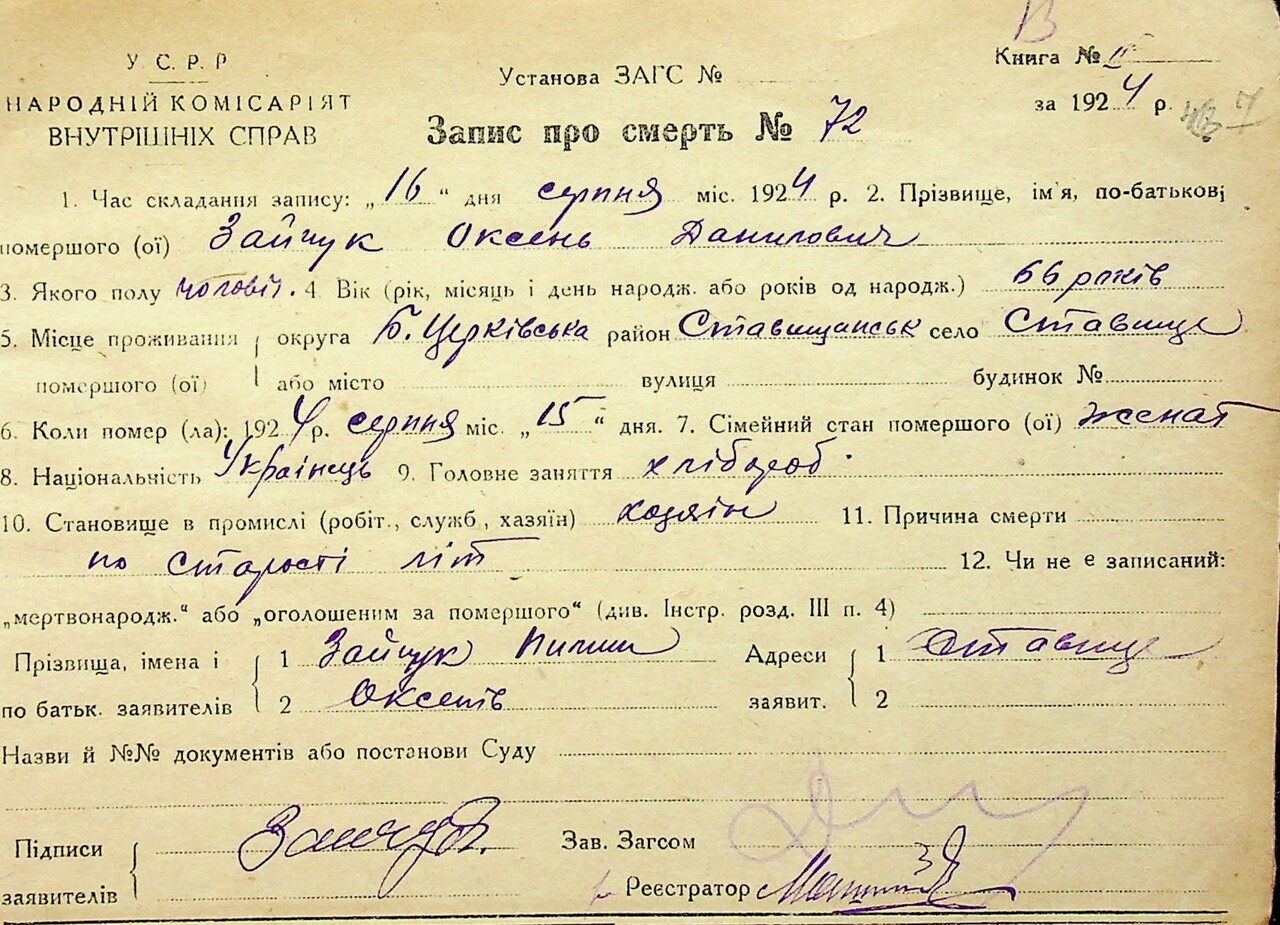 У.С.Р.Р
НАРОДНІЙ КОМІСАРІЯТ
ВНУТРІШНІХ СПРАВ
Установа ЗАГС №
Книга № II
за 1924 р. 7
Запис про смерть № 72
1. Час складання запису: „16“ дня серпня міс. 1924 р. 2. Прізвище, ім'я, по-батькові
помершого (ої) Зайчук Оксень Данилович
3. Якого полу чоловіч. 4 Вік (рік, місяць і день народж. або років од народж.) 66 років
5. Місце проживання округа Б. Церківська район Ставищанськ село Ставище
помершого (ої) або місто вулиця будинок №
6. Коли помер (ла): 1924 р. серпня міс. „15“ дня. 7. Сімейний стан помершого (ої) женат
8. Національність Українець 9. Головне заняття хлібороб.
10. Становище в промислі (робіт., служб., хазяїн) хозяін 11. Причина смерти
по старості літ 12. Чи не є записаний:
„мертвонародж.“ або „оголошеним за помершого“ (див. Інстр. розд. III п. 4)
Прізвища, імена і 1 Зайчук Пилип Адреси 1 Ставище
по батьк. заявителів 2 Оксенів заявит. 2
Назви й №№ документів або постанови Суду
Підписи Зав. Загсом
заявителів Реєстратор